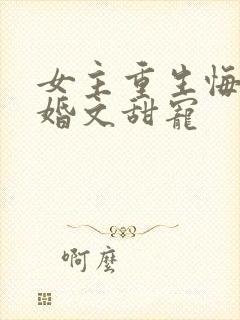 女主重生悔
婚文甜寵
啊麼